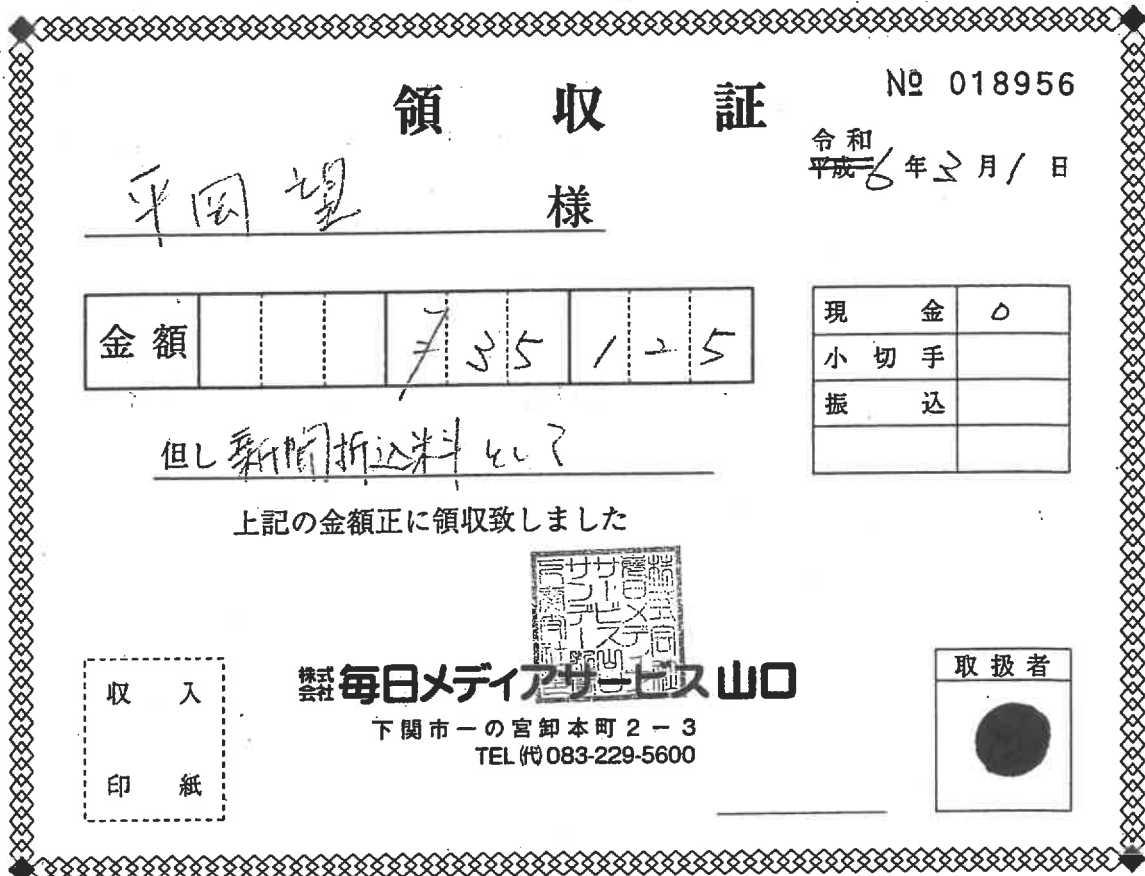 領収証
№ 018956
令和
平成 6年3月1日
平岡 望 様
金額 ¥35125
現金 0
小切手
振込
但し 新聞折込料として
上記の金額正に領収致しました
株式会社 毎日メディアサービス山口
下関市一の宮卸本町2-3
TEL(代)083-229-5600
収入
印紙
取扱者